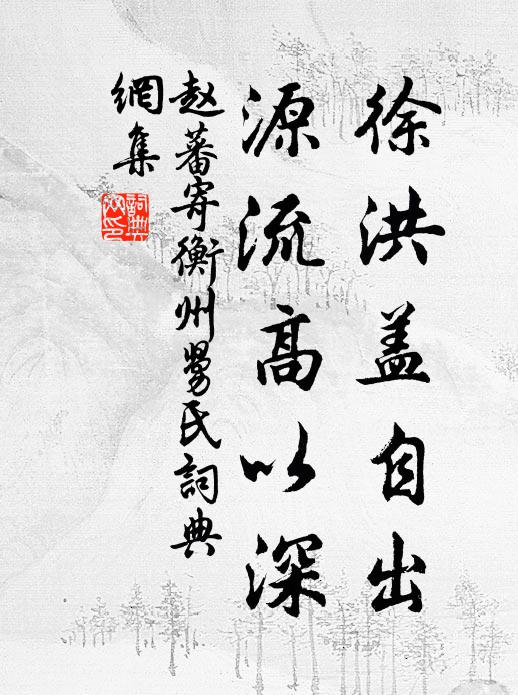 徐洪盖自出
源流高以深
赵蕃寄衡州舅氏詞典
網集
詞典
网印